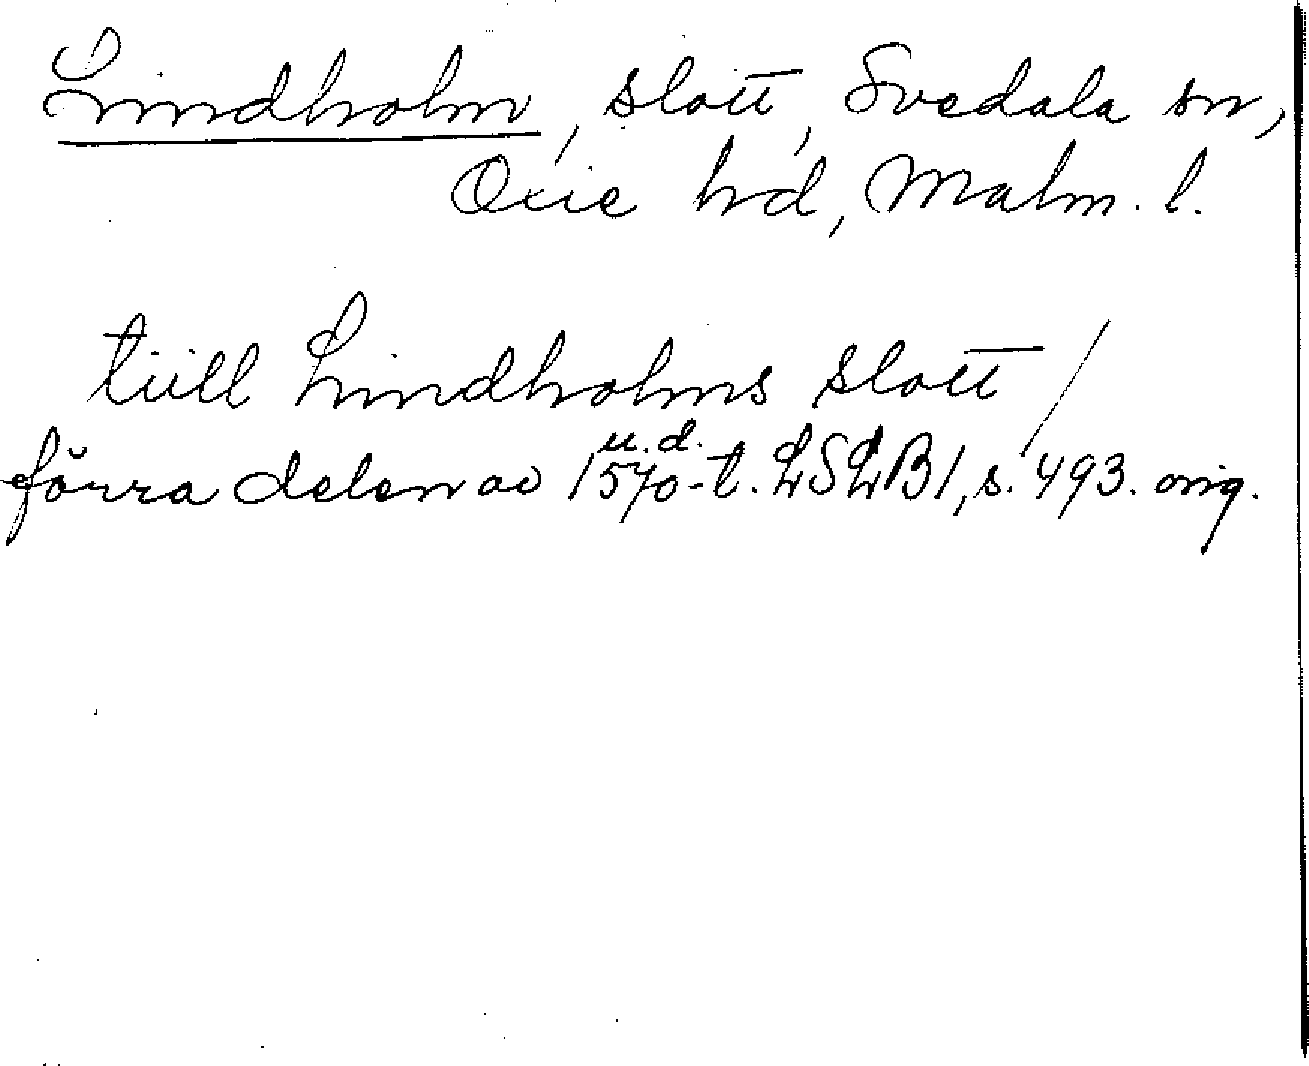 Lindholm, slott, Svedala sn,
Oxie hd, Malm. l.
tiill Lindholms slott /
u. d.
förra delen av 1570-t. LSLB1, s. 493. orig.